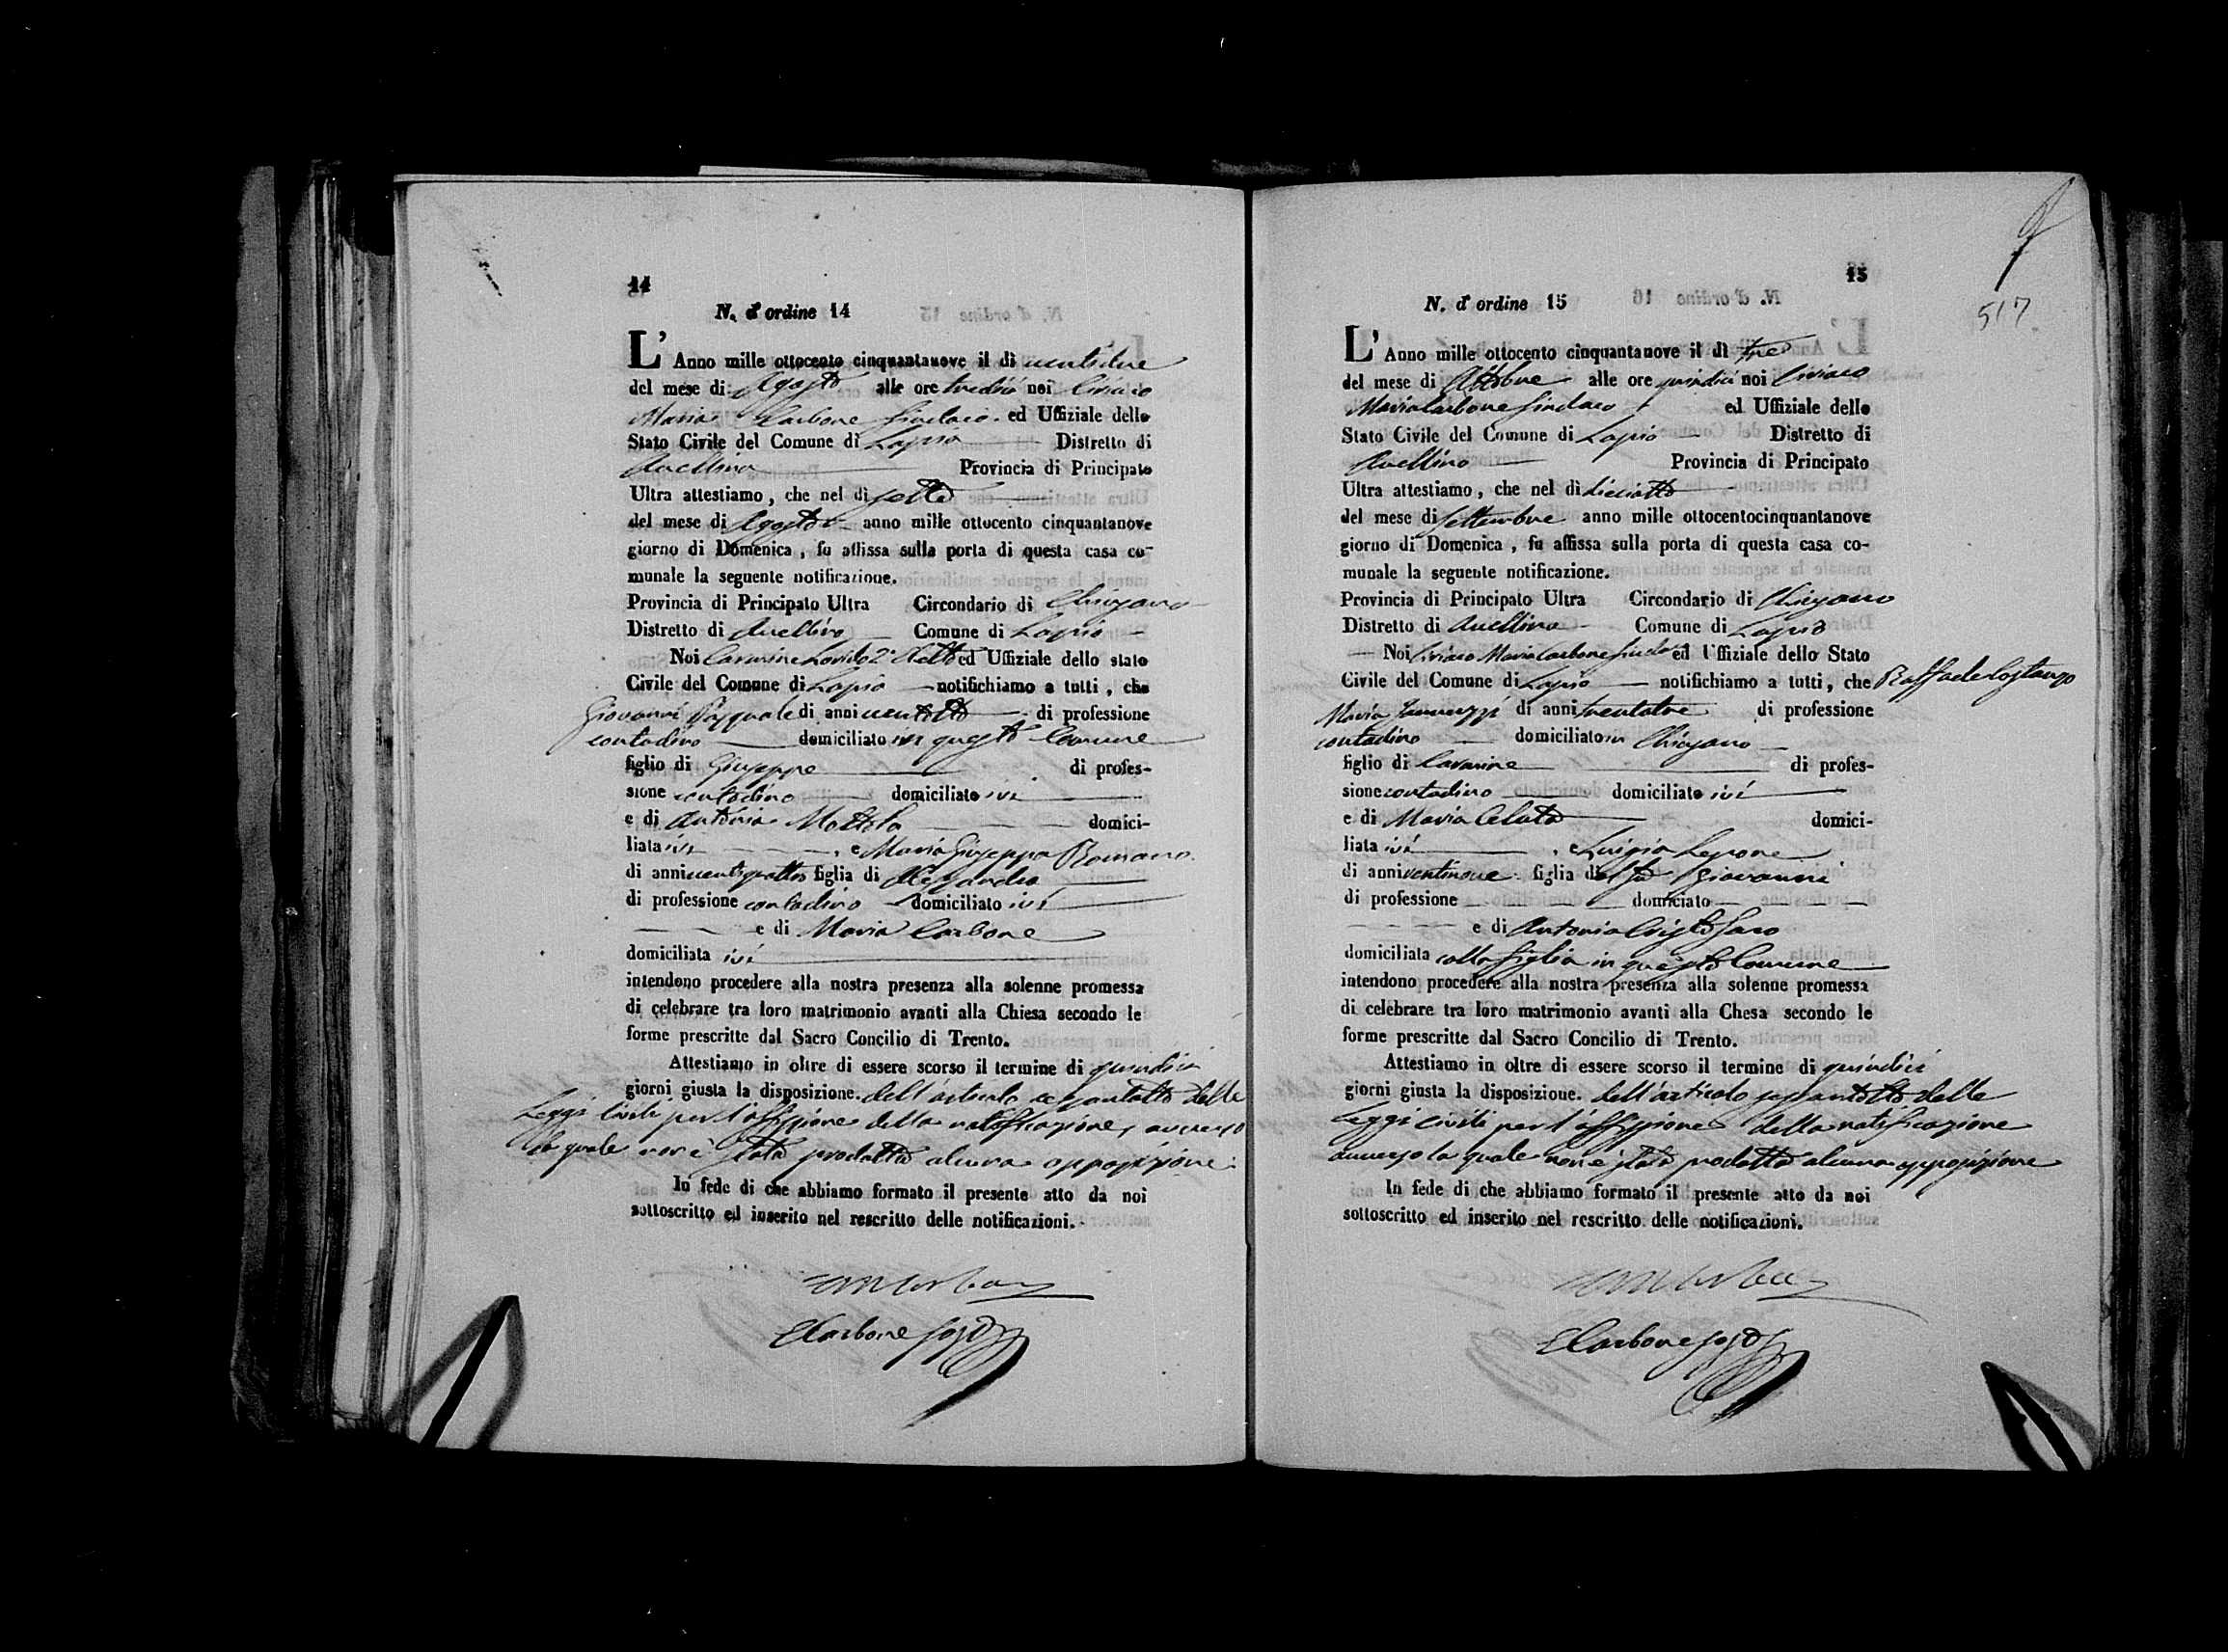 14
N. d'ordine 14
L'Anno mille ottocento cinquantanove il dì ventidue
del mese di Agosto alle ore tredici noi Ciriaco
Maria Carbone Sindaco ed Uffiziale dello
Stato Civile del Comune di Lapio Distretto di
Avellino Provincia di Principato
Ultra attestiamo, che nel dì sette
del mese di Agosto anno mille ottocento cinquantanove
giorno di Domenica, fu affissa sulla porta di questa casa co-
munale la seguente notificazione.
Provincia di Principato Ultra Circondario di Chiusano
Distretto di Avellino Comune di Lapio
Noi Carmine 2° Eletto ed Uffiziale dello stato
Civile del Comune di Lapio notifichiamo a tutti, che
Giovanni Pasquale di anni ventotto di professione
contadino domiciliato in questo Comune
figlio di Giuseppe di profes-
sione contadino domiciliato ivi
e di Antonia Mottola domici-
liata ivi, e Maria Giuseppa Romano
di anni ventiquattro figlia di Alessandro
di professione contadino domiciliato ivi
e di Maria Carbone
domiciliata ivi
intendono procedere alla nostra presenza alla solenne promessa
di celebrare tra loro matrimonio avanti alla Chiesa secondo le
forme prescritte dal Sacro Concilio di Trento.
Attestiamo in oltre di essere scorso il termine di quindici
giorni giusta la disposizione. dell'articolo sessantotto delle
Leggi Civili per l'affissione della notificazione, avverso
la quale non è stata prodotta alcuna opposizione.
In fede di che abbiamo formato il presente atto da noi
sottoscritto ed inserito nel rescritto delle notificazioni.
Carbone
15
517
N. d'ordine 15
L'Anno mille ottocento cinquantanove il dì tre
del mese di Ottobre alle ore quindici noi Ciriaco
Maria Carbone Sindaco ed Uffiziale dello
Stato Civile del Comune di Lapio Distretto di
Avellino Provincia di Principato
Ultra attestiamo, che nel dì diciotto
del mese di Settembre anno mille ottocentocinquantanove
giorno di Domenica, fu affissa sulla porta di questa casa co-
munale la seguente notificazione.
Provincia di Principato Ultra Circondario di Chiusano
Distretto di Avellino Comune di Lapio
Noi Ciriaco Maria Carbone Sindaco ed Uffiziale dello Stato
Civile del Comune di Lapio notifichiamo a tutti, che Raffaele Costanzo
Maria Iannuzzi di anni trentatre di professione
contadino domiciliato in Chiusano
figlio di Carmine di profes-
sione contadino domiciliato ivi
e di Maria Celata domici-
liata ivi, e Luigia Lepore
di anni ventinove figlia del fu Giovanni
di professione domiciato
e di Antonia Cristofaro
domiciliata colla figlia in questo Comune
intendono procedere alla nostra presenza alla solenne promessa
di celebrare tra loro matrimonio avanti alla Chesa secondo le
forme prescritte dal Sacro Concilio di Trento.
Attestiamo in oltre di essere scorso il termine di quindici
giorni giusta la disposizione. dell'articolo sessantotto delle
Leggi civili per l'affissione della notificazione
avverso la quale non è stata prodotta alcuna opposizione
In fede di che abbiamo formato il presente atto da noi
sottoscritto ed inserito nel rescritto delle notificazioni.
Carbone